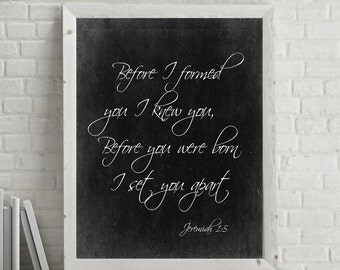 Before I formed
you I knew you,
Before you were born
I set you apart
Jeremiah 1:5